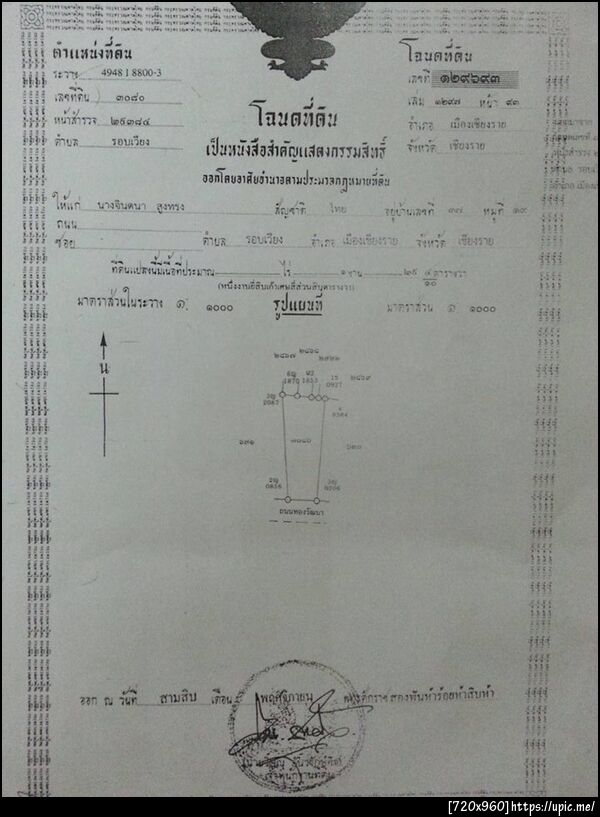 ตำแหน่งที่ดิน
ระวาง 4948 I 8800-3
เลขที่ดิน ๓๐๘๐
หน้าสำรวจ ๒๕๓๘๔
ตำบล รอบเวียง
โฉนดที่ดิน
เลขที่ ๑๒๙๖๙๓
เล่ม ๑๒๙๗ หน้า ๙๓
อำเภอ เมืองเชียงราย
จังหวัด เชียงราย
โฉนดที่ดิน
เป็นหนังสือสำคัญแสดงกรรมสิทธิ์
ออกโดยอาศัยอำนาจตามประมวลกฎหมายที่ดิน
ให้แก่ นางจินตนา สูงทรง สัญชาติ ไทย อยู่บ้านเลขที่ ๓๗ หมู่ที่ ๑๙
ถนน
ซอย ตำบล รอบเวียง อำเภอ เมืองเชียงราย จังหวัด เชียงราย
ที่ดินแปลงนี้มีเนื้อที่ประมาณ ไร่ ๑ งาน ๒๙ ๔/๑๐ ตารางวา
(หนึ่งงานยี่สิบเก้าเศษสี่ส่วนสิบตารางวา)
มาตราส่วนในระวาง ๑: ๑๐๐๐ รูปแผนที่ มาตราส่วน ๑: ๑๐๐๐
น
๒๔๖๗ ๒๔๖๘ ๒๙๒๒
1870 1853 0927 ๒๔๖๙
2067
๓๐๘๐
๖๓๑
ถนนทองวัฒนา
ออก ณ วันที่ สามสิบ เดือน พฤศจิกายน พุทธศักราช สองพันห้าร้อยห้าสิบห้า
เจ้าพนักงานที่ดิน
[720x960]https://upic.me/